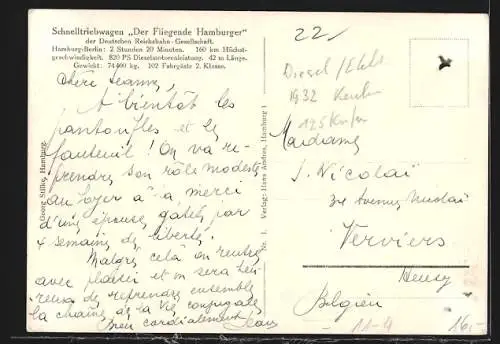 Schnelltriebwagen „Der Fliegende Hamburger"
der Deutschen Reichsbahn-Gesellschaft.
Hamburg-Berlin: 2 Stunden 20 Minuten. 160 km Höchst-
geschwindigkeit. 820 PS Dieselmotorenleistung. 42 m Länge.
Gewicht: 74400 kg. 102 Fahrgäste 2. Klasse.
Chère Jeanne,
A bientôt les
pantoufles et le
fauteuil! On va re-
prendre son rôle modeste
au foyer à la merci
d'une épouse gatée par
4 semaines de liberté.
Malgré celà on rentre
avec plaisir et on sera heu-
reux de reprendre ensemble
la chaîne de la vie conjugale
Bien cordialement Jean
Georg Stilke, Hamburg.
Nr. 1. Verlag: Hans Andres, Hamburg 1
22,-
Diesel/Elektr
1932
125 Km/m
Madame
J. Nicolaï
Avenue Nicolaï
Verviers
Heusy
Belgien
11-4
16,-